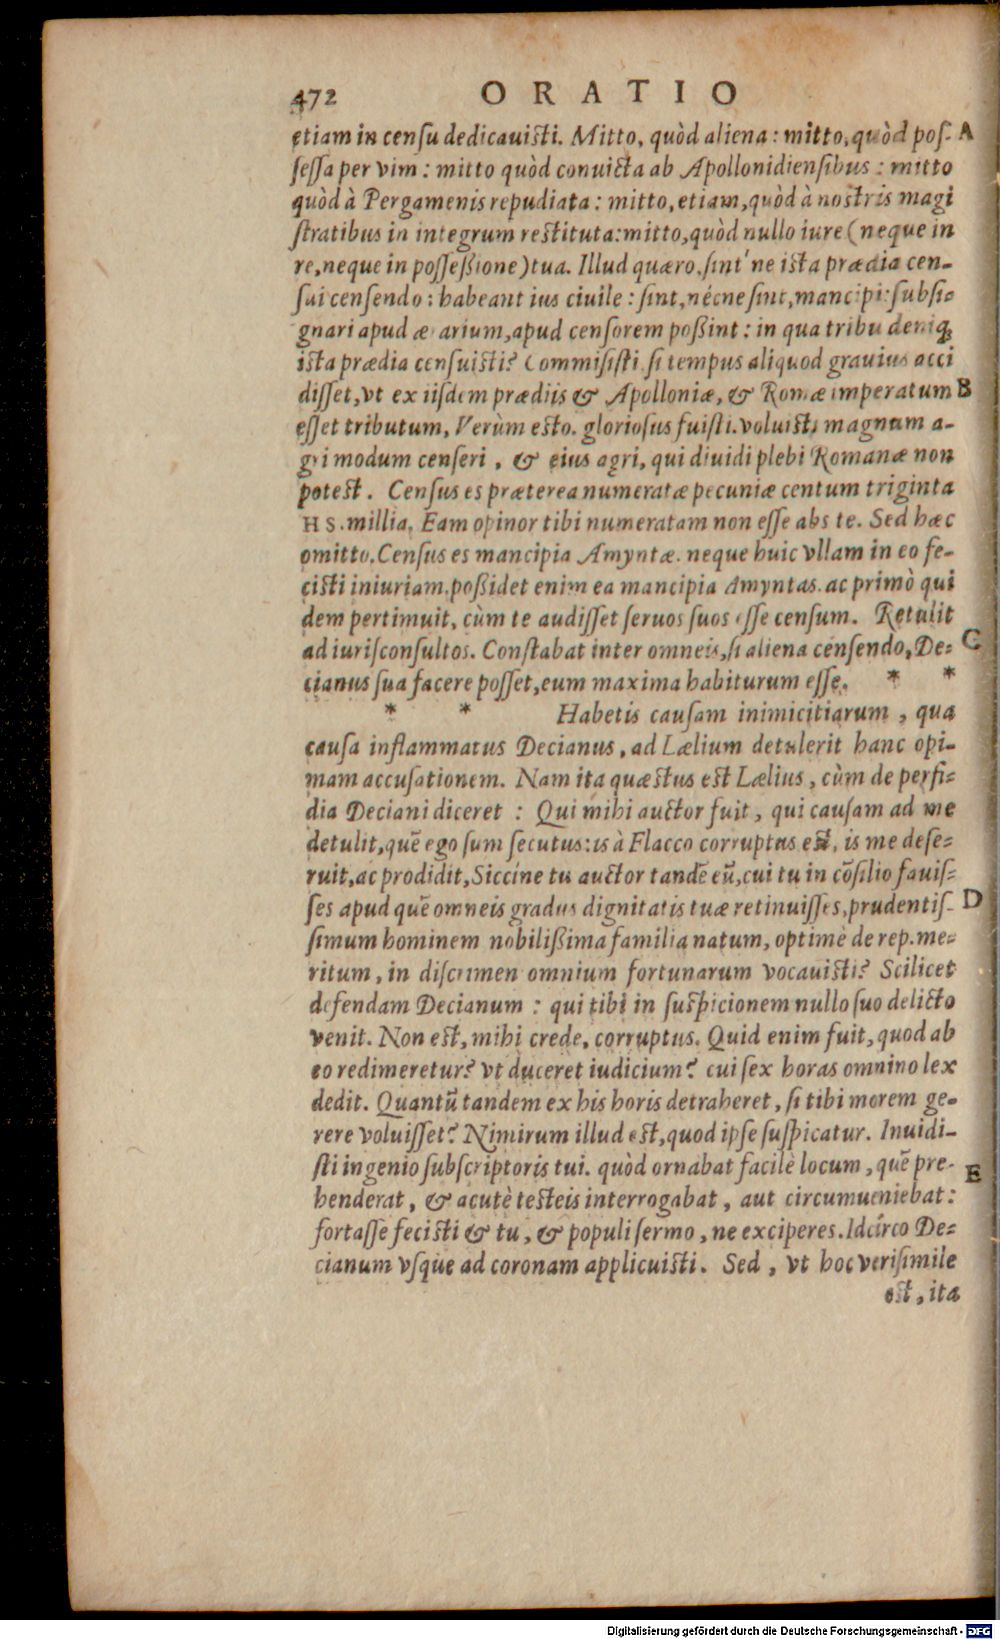 472 ORATIO
etiam in censu dedicavisti. Mitto, quòd aliena: mitto, quòd pos- A
sessa per vim: mitto quòd convicta ab Apollonidiensibus: mitto
quòd à Pergamenis repudiata: mitto, etiam, quòd à nostris magi
stratibus in integrum restituta: mitto, quòd nullo iure (neque in
re, neque in possessione) tua. Illud quæro, sint' ne ista prædia cen-
sui censendo: habeant ius civile: sint, nécne sint, mancipi: subsi-
gnari apud ærarium, apud censorem possint: in qua tribu deniq;
ista prædia censuisti? Commisisti si tempus aliquod gravius acci
disset, vt ex iisdem prædiis & Apolloniæ, & Romæ imperatum B
esset tributum, Verùm esto. gloriosus fuisti. voluisti magnum a-
gri modum censeri, & eius agri, qui dividi plebi Romanæ non
potest. Census es præterea numeratæ pecuniæ centum triginta
HS. millia. Eam opinor tibi numeratam non esse abs te. Sed hæc
omitto. Census es mancipia Amyntæ. neque huic vllam in eo fe-
cisti iniuriam. possidet enim ea mancipia Amyntas. ac primò qui
dem pertimuit, cùm te audisset servos suos esse censum. Retulit
ad iurisconsultos. Constabat inter omneis, si aliena censendo, De- C
cianus sua facere posset, eum maxima habiturum esse. * *
* * Habetis causam inimicitiarum, qua
causa inflammatus Decianus, ad Lælium detulerit hanc opi-
mam accusationem. Nam ita quæstus est Lælius, cùm de perfi-
dia Deciani diceret: Qui mihi auctor fuit, qui causam ad me
detulit, quē ego sum secutus: is à Flacco corruptus est, is me dese-
ruit, ac prodidit, Siccíne tu auctor tandē eū, cui tu in cōsilio fauis-
ses apud quē omneis gradus dignitatis tuæ retinuisses, prudentis- D
simum hominem nobilissima familia natum, optimè de rep. me-
ritum, in discrimen omnium fortunarum vocavisti? Scilicet
defendam Decianum: qui tibi in suspicionem nullo suo delicto
venit. Non est, mihi crede, corruptus. Quid enim fuit, quod ab
eo redimeretur? vt duceret iudicium? cui sex horas omnino lex
dedit. Quantū tandem ex his horis detraheret, si tibi morem ge-
rere voluisset? Nimirum illud est, quod ipse suspicatur. Invidi-
sti ingenio subscriptoris tui. quòd ornabat facilè locum, quē pre- E
henderat, & acutè testeis interrogabat, aut circumveniebat:
fortasse fecisti & tu, & populi sermo, ne exciperes. Idcirco De-
cianum vsque ad coronam applicuisti. Sed, vt hoc verisimile
est, ita
Digitalisierung gefördert durch die Deutsche Forschungsgemeinschaft - DFG